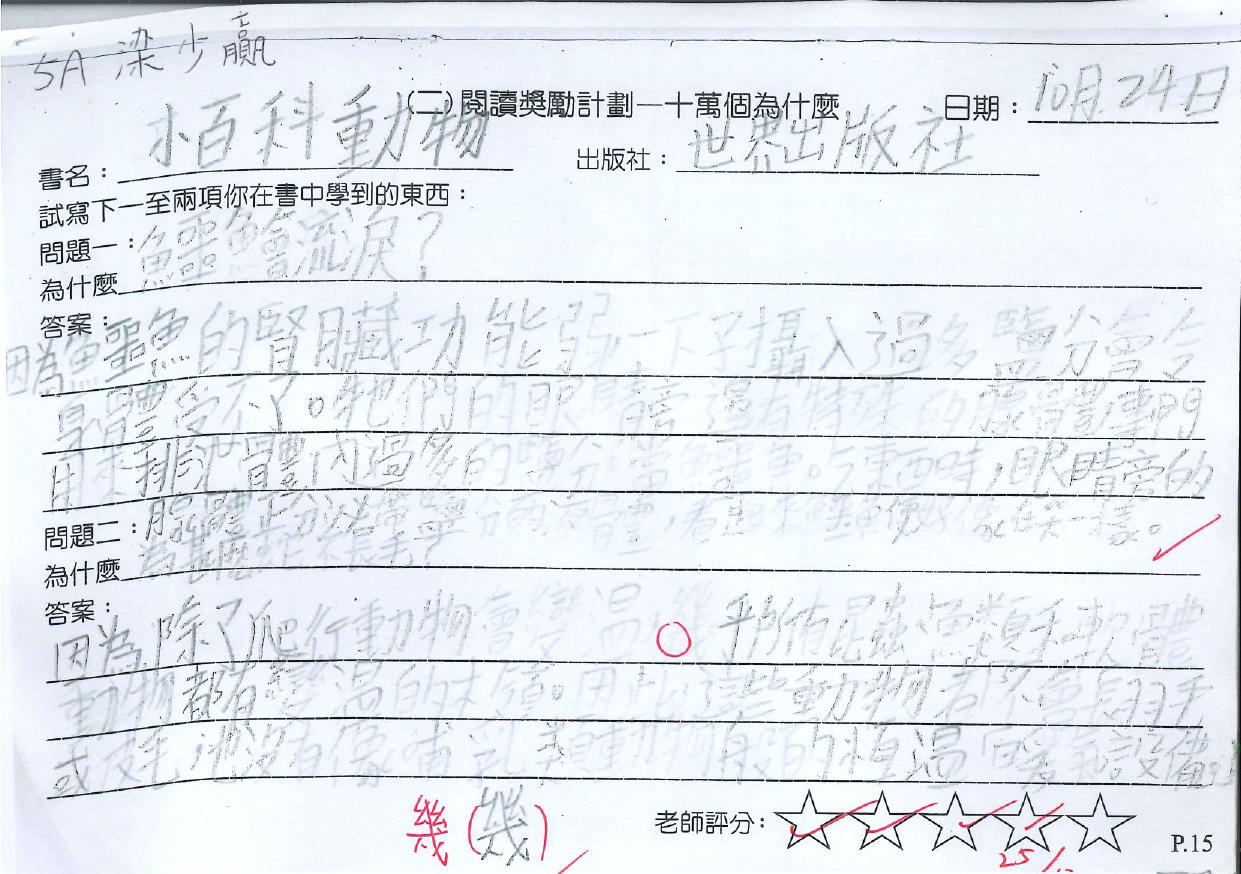 5A 梁少贏
(二)閱讀獎勵計劃—十萬個為什麼 日期：10月24日
書名：小百科動物 出版社：世界出版社
試寫下一至兩項你在書中學到的東西：
問題一：
為什麼 鱷魚會流淚？
答案：
因為鱷魚的腎臟功能弱,一下子攝入過多鹽分會令
身體受不了。牠們的眼睛旁還有特殊的腺體,專門
用來排出體內過多的鹽分。當鱷魚吃東西時,眼睛旁的
腺體正分泌帶鹽分的液體,看起來鱷魚便好像在哭一樣。
問題二：
為什麼
答案：
因為除了爬行動物會變溫,幾乎所有昆蟲魚類和軟體
動物都有變溫的本領。因此這些動物都不會長羽毛
或皮毛,也沒有像哺乳類動物般的恆溫 暖氣設備
幾(幾)
老師評分：
25/
P.15